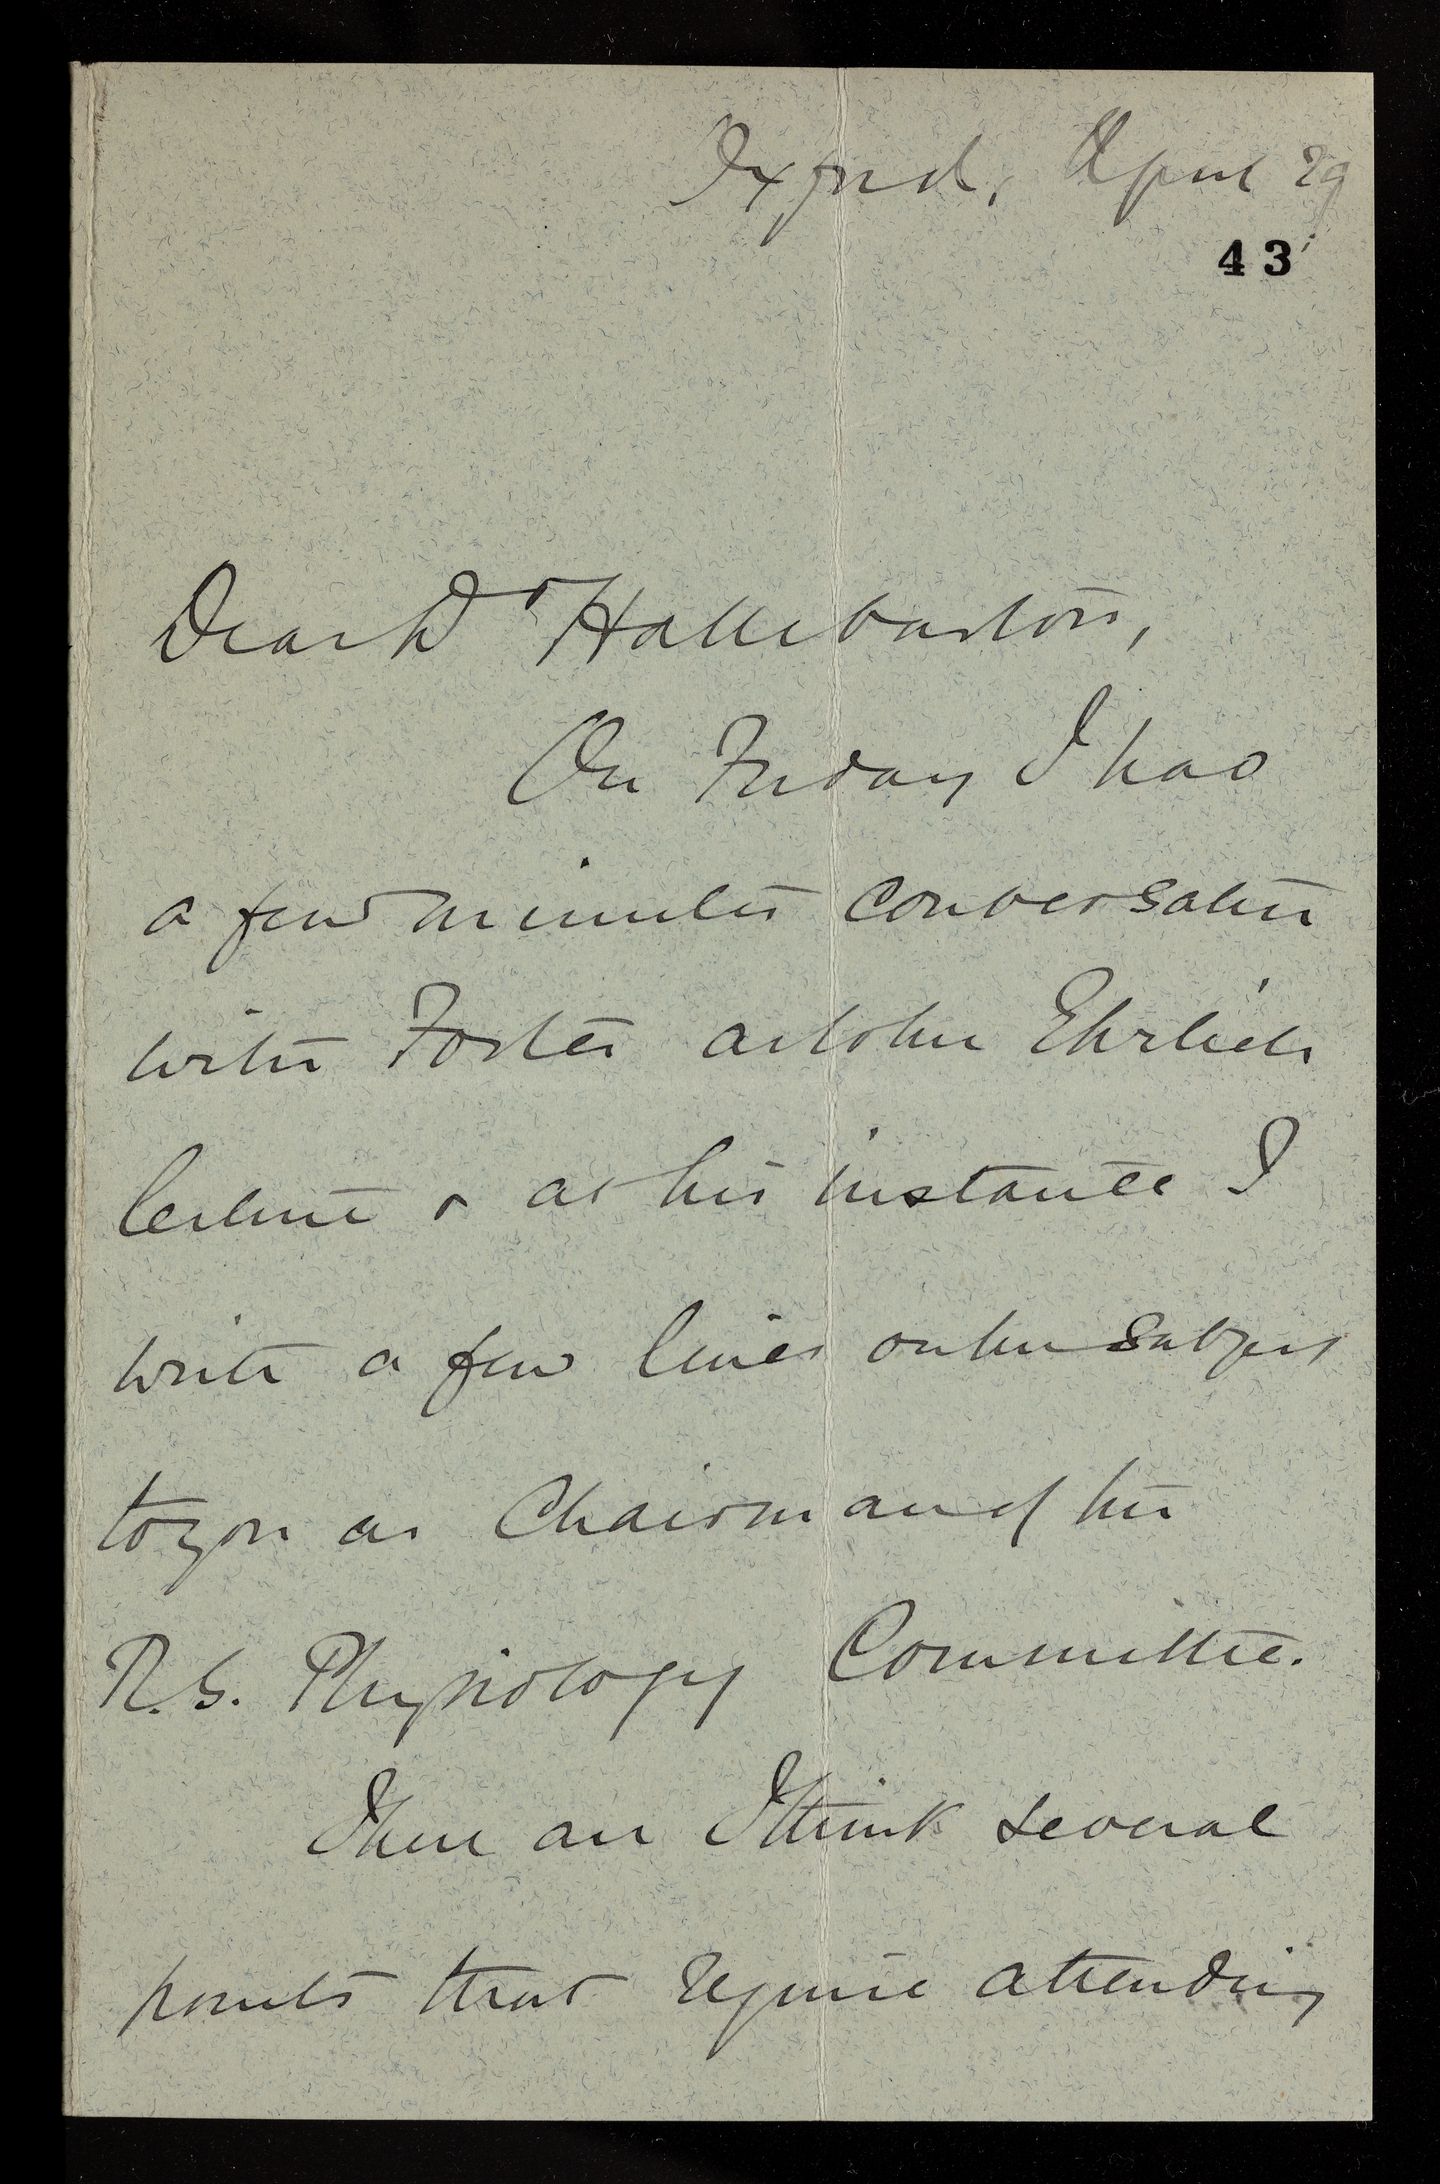 Oxford, April 29
43
Dear Dr Halliburton,
On Friday I had
a few minutes conversation
with Foster after the Ehrlich
lecture & at his instance I
write a few lines on the subject
to you as Chairman of the
R.S. Physiology Committee.
There are I think several
points that require attending